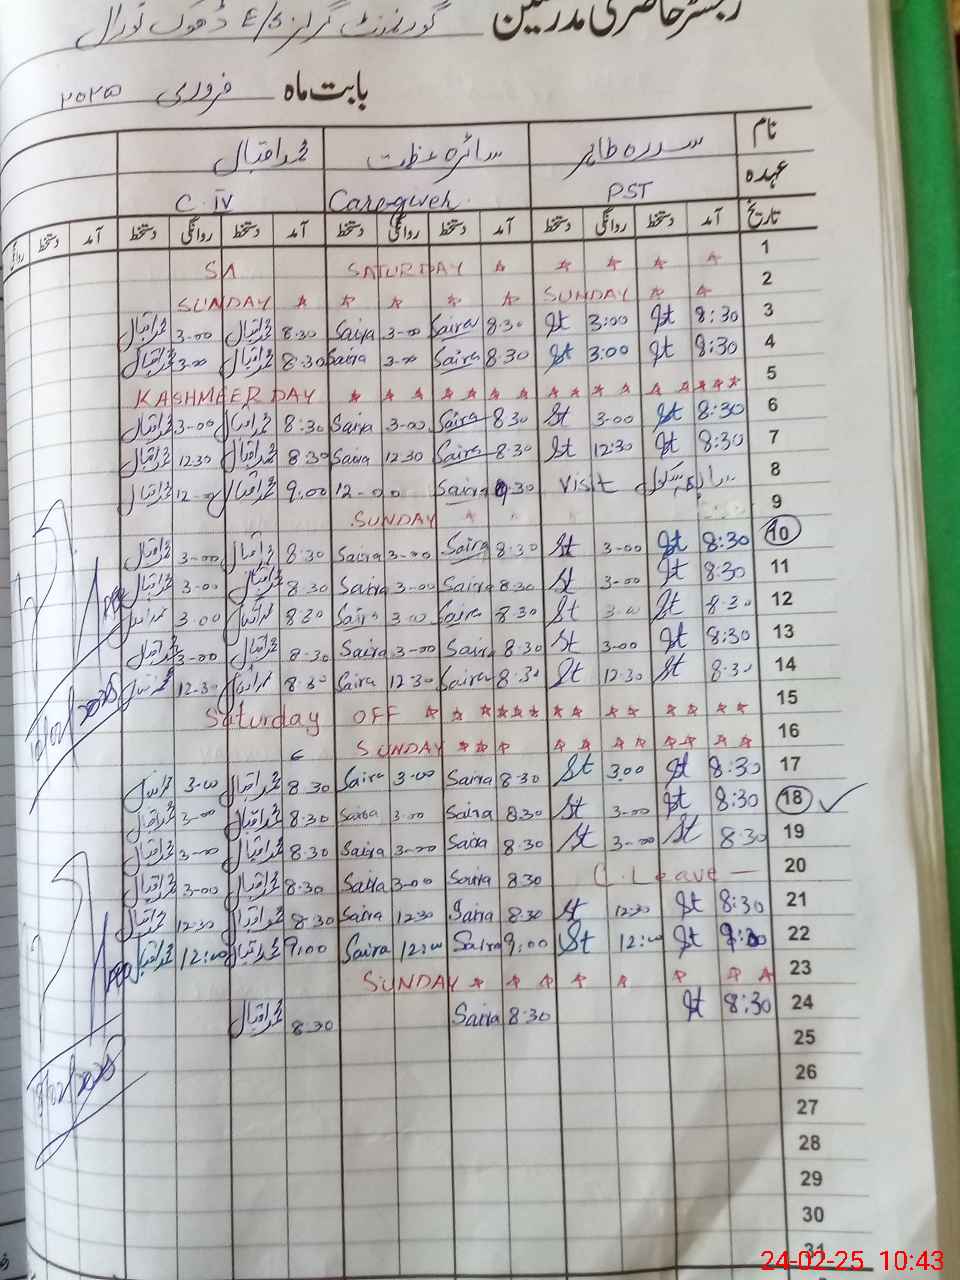 رجسٹر حاضری مدرسین گورنمنٹ گرلز E/S ڈھوک نورال
بابت ماہ فروری ۲۰۲۵
نام سدرہ طاہر سائرہ عظمت محمد اقبال
عہدہ PST Caregiver C.IV
تاریخ آمد دستخط روانگی دستخط آمد دستخط روانگی دستخط آمد دستخط روانگی دستخط آمد دستخط روانگی
1 SATURDAY SA
2 SUNDAY SUNDAY
3 8:30 St 3:00 St 8.30 Saira 3-00 Saira 8.30 محمد اقبال 3-00 محمد اقبال
4 8:30 St 3:00 St 8.30 Saira 3-00 Saira 8.30 محمد اقبال 3-00 محمد اقبال
5 KASHMEER DAY
6 8:30 St 3-00 St 8.30 Saira 3-00 Saira 8:30 محمد اقبال 3-00 محمد اقبال
7 8:30 St 12:30 St 8.30 Saira 12.30 Saira 8.30 محمد اقبال 12.30 محمد اقبال
8 Visit 9.30 Saira 12-00 9.00 محمد اقبال 12-00 محمد اقبال
9 SUNDAY
10 8:30 St 3-00 St 8.30 Saira 3-00 Saira 8.30 محمد اقبال 3-00 محمد اقبال
11 8:30 St 3-00 St 8.30 Saira 3-00 Saira 8.30 محمد اقبال 3-00 محمد اقبال
12 8.30 St 3.00 St 8.30 Saira 3.00 Saira 8.30 محمد اقبال 3.00 محمد اقبال
13 8:30 St 3-00 St 8.30 Saira 3-00 Saira 8.30 محمد اقبال 3-00 محمد اقبال
14 8.30 St 12.30 St 8.30 Saira 12.30 Saira 8.30 محمد اقبال 12.30 محمد اقبال
15 Saturday OFF
16 SUNDAY
17 8:30 St 3.00 St 8.30 Saira 3.00 Saira 8.30 محمد اقبال 3.00 محمد اقبال
18 8:30 St 3-00 St 8.30 Saira 3.00 Saira 8.30 محمد اقبال 3-00 محمد اقبال
19 8.30 St 3-00 St 8.30 Saira 3-00 Saira 8.30 محمد اقبال 3-00 محمد اقبال
20 C.Leave 8.30 Saira 3-00 Saira 8.30 محمد اقبال 3-00 محمد اقبال
21 8:30 St 12:30 St 8.30 Saira 12.30 Saira 8.30 محمد اقبال 12.30 محمد اقبال
22 St 12:00 St 9:00 Saira 12:00 Saira 9:00 محمد اقبال 12:00 محمد اقبال
23 SUNDAY
24 8:30 St 8.30 Saira 8.30 محمد اقبال
25
26
27
28
29
30
31
18/02/2025
24-02-25 10:43